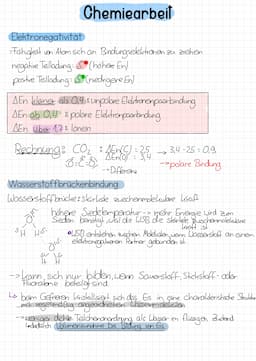 Chemiearbeit
Elektronegativität
-Fähigkeit von Atom sich an Bindungselektronen zu ziehen
negative Teilladung: (höhere En)
positive Teilladung: (niedrigere En)
ΔEn kleiner als 0,4: unpolare Elektronenpaarbindung
ΔEn ab 0,4: polare Elektronenpaarbindung
ΔEn über 1,7: Ionen
Rechnung: CO₂ : ΔEn(C) = 2,5 → 3,4-2,5 = 0,9
ΔEn(O) = 3,4
O=C=O
→Differenz
→polare Bindung
Wasserstoffbrückenbindung
Wasserstoffbrücke: stärkste zwischenmolekulare Kraft
höhere Siedetemperatur → mehr Energie wird zum
Sieden benötigt, weil die WSB die stärkste zwischenmolekulare
Kraft ist
WSB entstehen zwischen Molekülen, wenn Wasserstoff an einem
elektronegativen Partner gebunden ist
→ kann sich nur bilden, wenn Sauerstoff, Stickstoff- oder
Fluoratome beteiligt sind
beim Gefrieren kristallisiert sich das Eis in eine charakteristische Struktur
mit regelmäßig angeordneten
als Wasser im flüssigen Zustand
Volumenzunahme bei Bildung von Eis